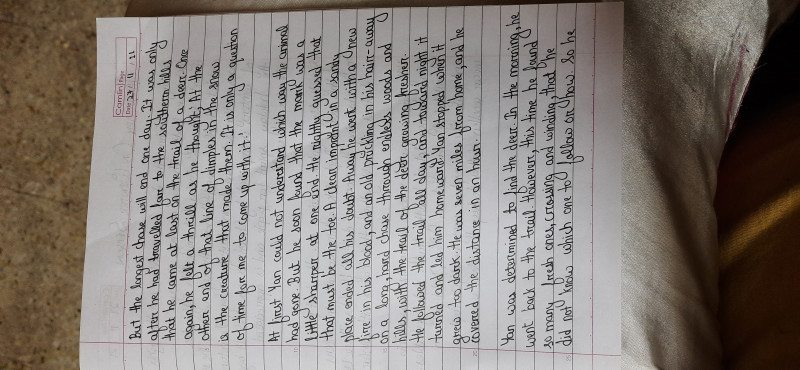 Camlin Page
Date 27 / 11 / 21
But the longest chase will end one day. It was only
after he had travelled far to the southern hills
that he came at last on the trail of a deer. One
again, he felt a thrill as he thought, 'At the
other end of that line of dimples in the snow
is the creature that made them. It is only a question
of time for me to come up with it.'
At first Yan could not understand which way the animal
had gone. But he soon found that the mark was a
little sharper at one end. He rightly guessed that
that must be the toe. A clear imprint in a sandy
place ended all his doubt. Away he went with a new
fire in his blood, and an old prickling in his hair-away
on a long, hard chase through endless woods and
hills, with the trail of the deer growing fresher.
He followed the trail all day, and toward night it
turned and led him homeward. Yan stopped when it
grew too dark. He was seven miles from home, and he
covered the distance in an hour.
Yan was determined to find the deer. In the morning, he
went back to the trail. However, this time he found
so many fresh ones, crossing and winding, that he
did not know which one to follow or how. So he